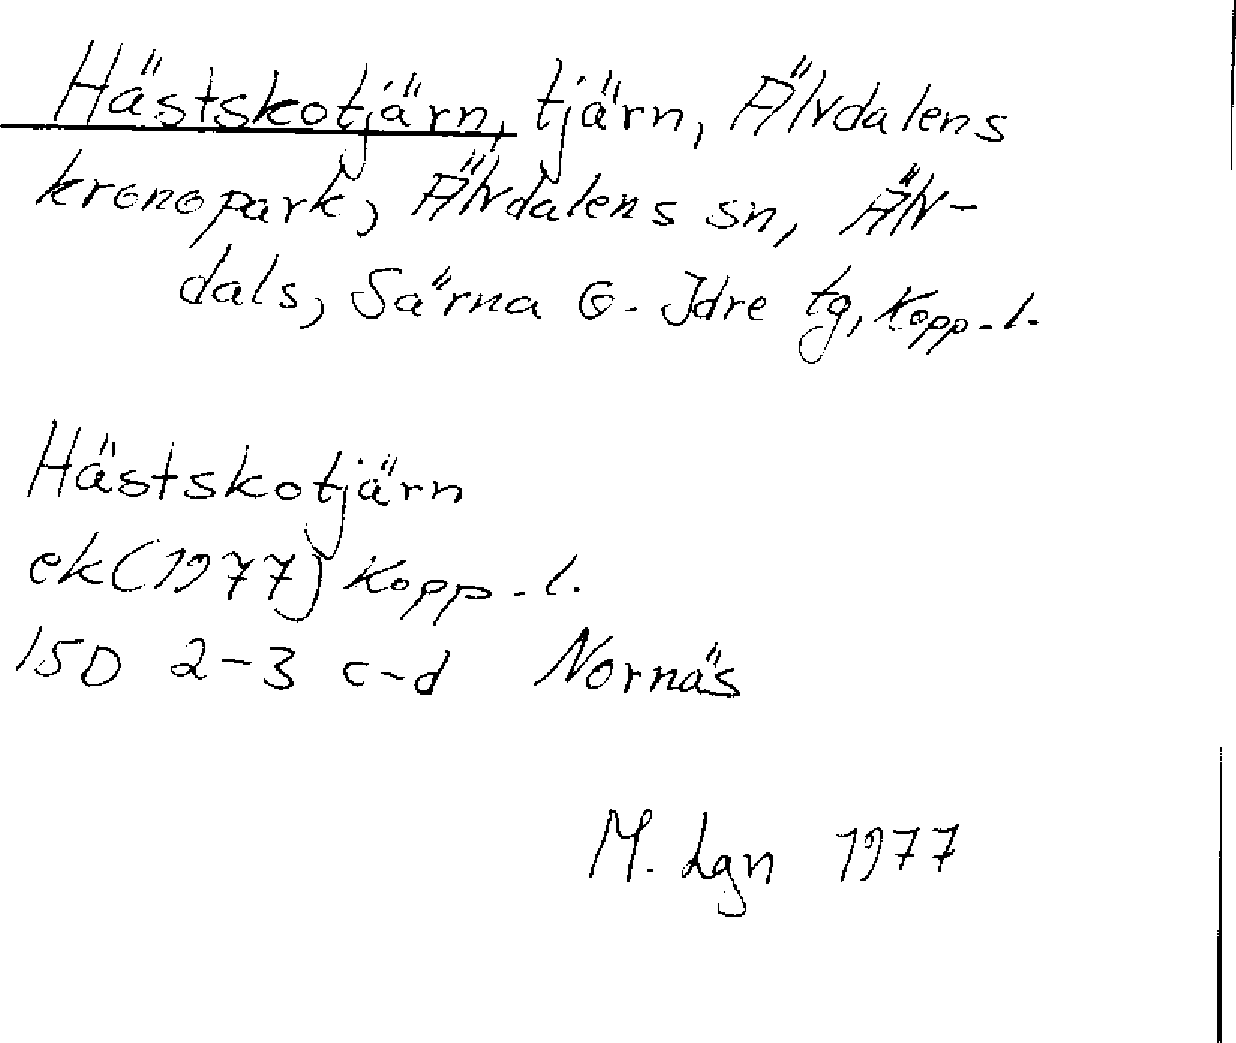 Hästskotjärn, tjärn, Älvdalens
kronopark, Älvdalens sn, Älv-
dals, Särna o. Idre tg, Kopp.l.
Hästskotjärn
ek (1977) Kopp.l.
15D 2-3 c-d Nornäs
M. Lgn 1977